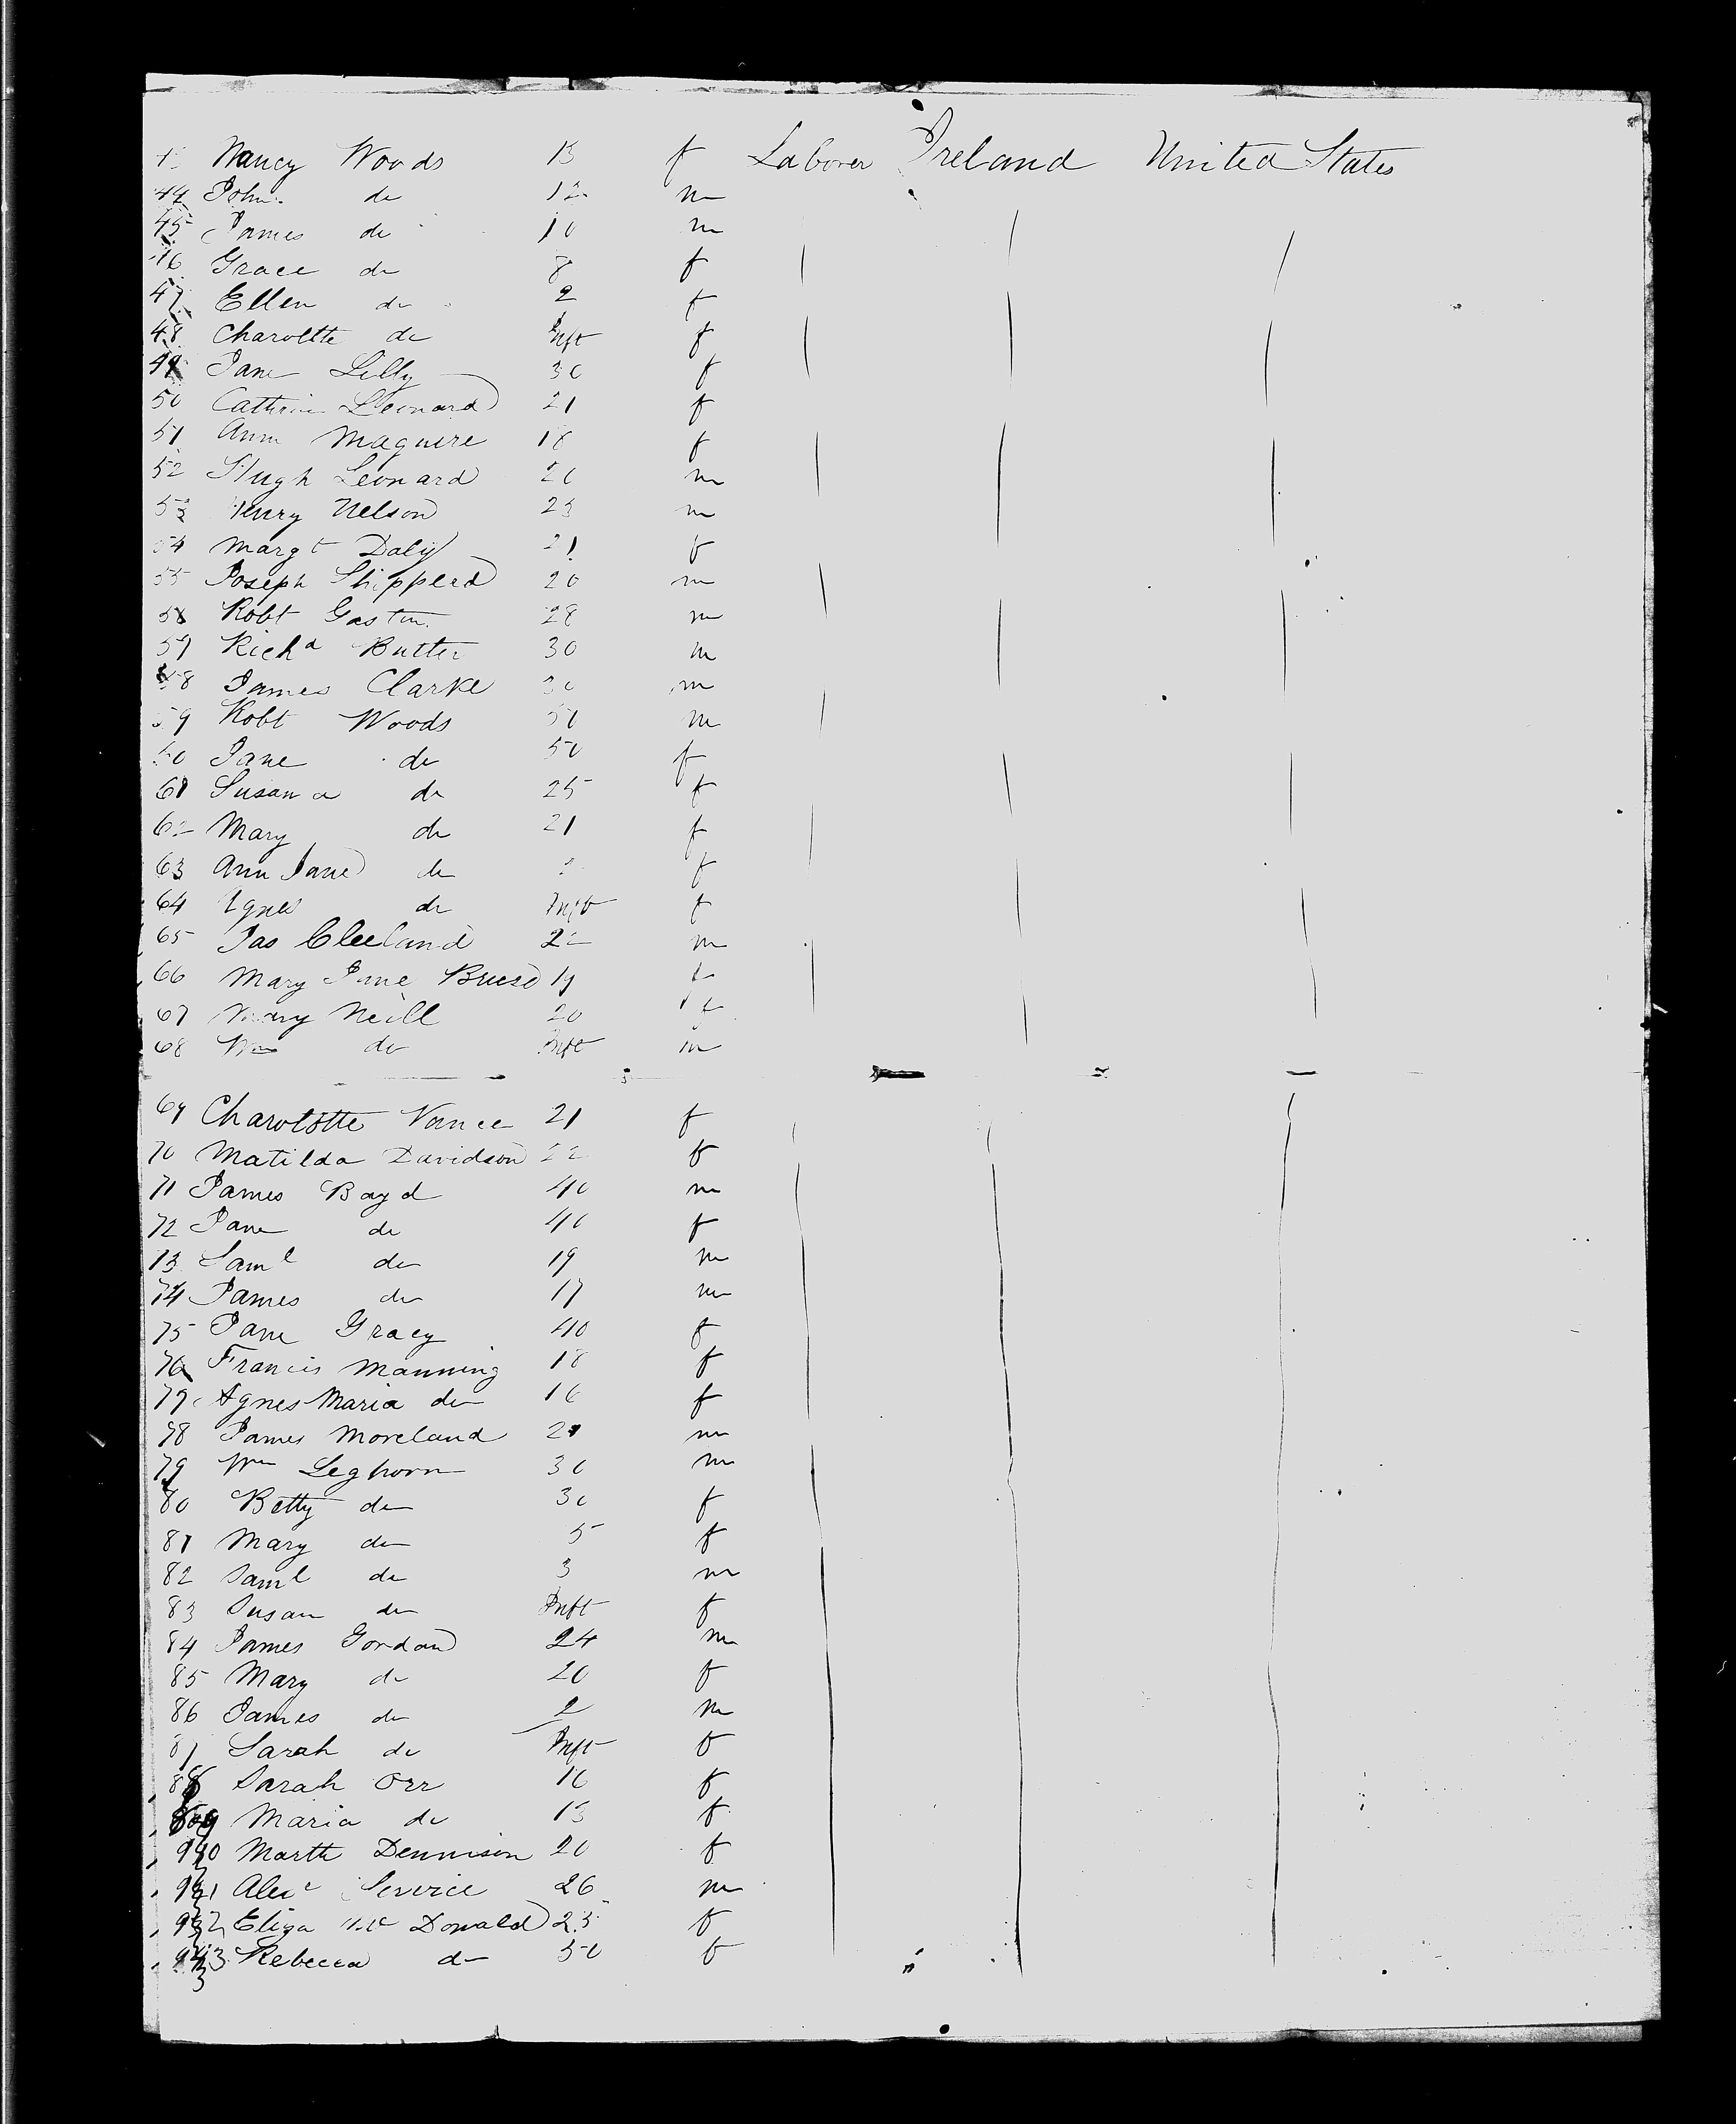 Nancy Woods 13 f Laborer Ireland United States
44 John do 12 m
45 James do 10 m
46 Grace do 8 f
47 Ellen do 2 f
48 Charoltte do Inft f
49 Jane Lilly 30 f
50 Cathrine Leonard 21 f
51 Ann Maguire 18 f
52 Hugh Leonard 20 m
53 Henry Nelson 23 m
54 Margt Daly 21 f
55 Joseph Shipperd 20 m
56 Robt Gaston 28 m
57 Richd Butler 30 m
58 James Clarke 30 m
59 Robt Woods 50 m
60 Jane do 50 f
61 Susana do 25 f
62 Mary do 21 f
63 Ann Jane do f
64 Agnes do Inft f
65 Jas Cleeland m
66 Mary Jane 19 f
67 Mary Neill 20 f
68 Wm do Inft m
69 Charolotte Vance 21 f
70 Matilda Davidson 22 f
71 James Boyd 40 m
72 Jane do 40 f
73 Saml do 19 m
74 James do 17 m
75 Jane Gracy 40 f
76 Francis Manning 18 f
77 Agnes Maria do 16 f
78 James Moreland m
79 Wm Leghorn 30 m
80 Betty do 30 f
81 Mary do 5 f
82 Saml do 3 m
83 Susan do Inft f
84 James Gordon 24 m
85 Mary do 20 f
86 James do 2 m
87 Sarah do Inft f
88 Sarah Orr 16 f
89 Maria do 13 f
90 Marth Dennison 20 f
91 Alexr Service 26 m
92 Eliza Mc Donald 23 f
93 Rebecca do 50 f